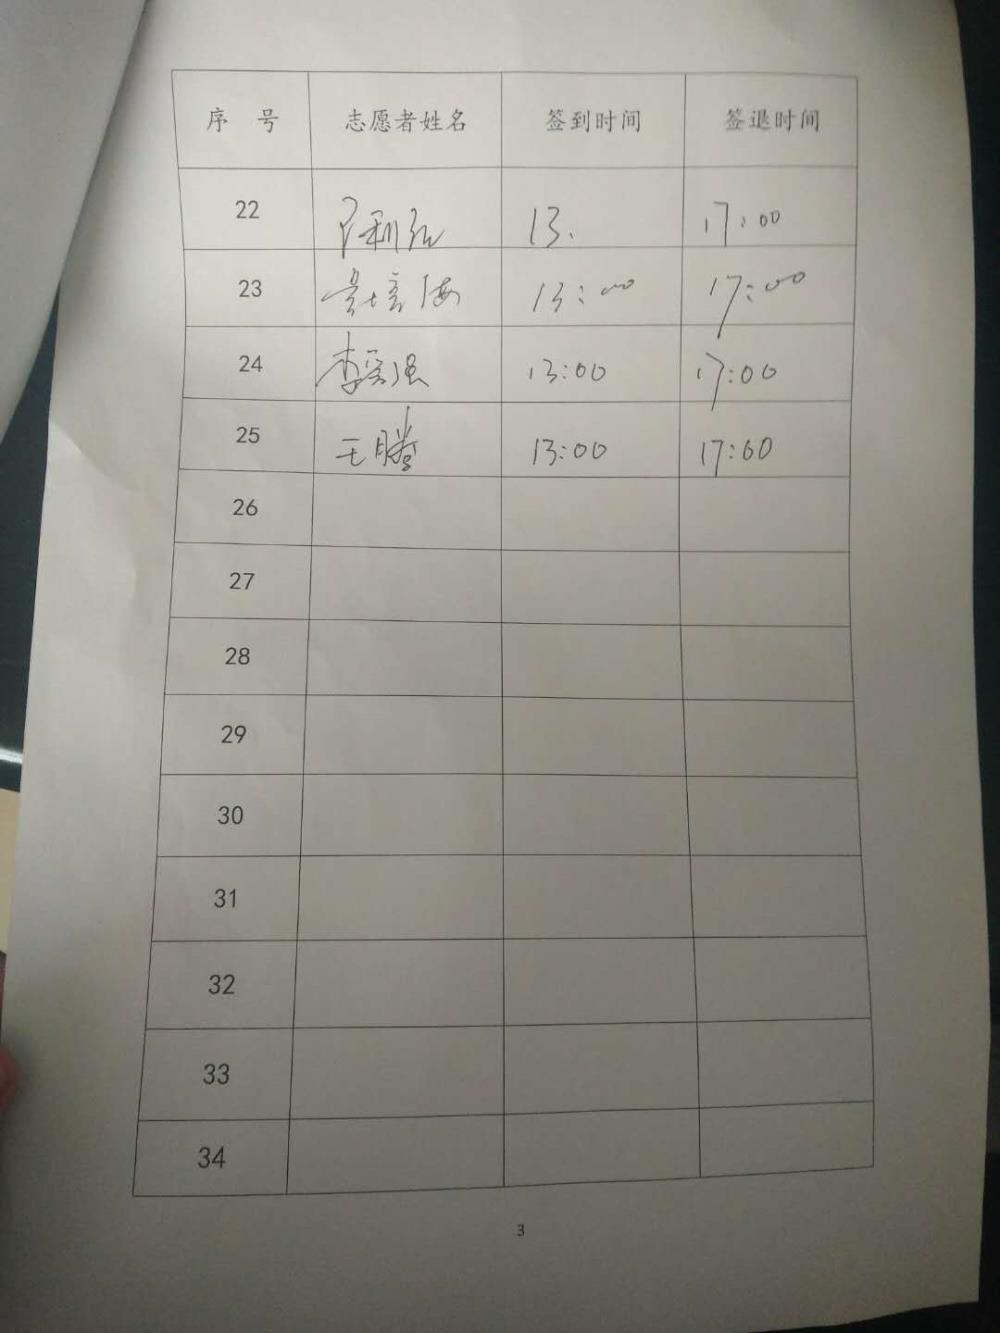 序 号 志愿者姓名 签到时间 签退时间
22 13. 17:00
23 13:00 17:00
24 13:00 17:00
25 王腾 13:00 17:00
26
27
28
29
30
31
32
33
34
3